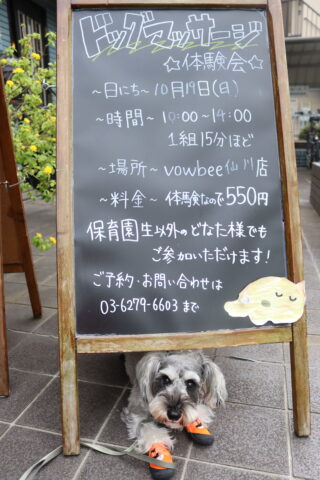 ドッグマッサージ
☆体験会☆
~日にち~ 10月19日(日)
~時間~ 10:00~14:00
1組15分ほど
~場所~ vowbee仙川店
~料金~ 体験なので550円
保育園生以外のどなた様でも
ご参加いただけます!
ご予約・お問い合わせは
03-6279-6603 まで